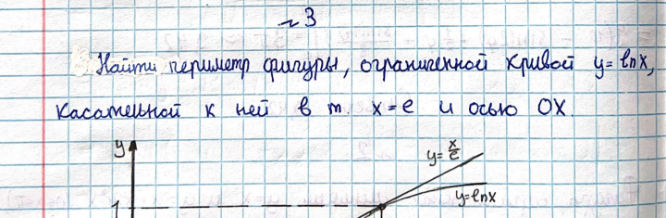 №3
Найти периметр фигуры, ограниченной кривой y=lnx,
касательной к ней в т. x=e и осью OX.
y
y=x/e
y=lnx
1